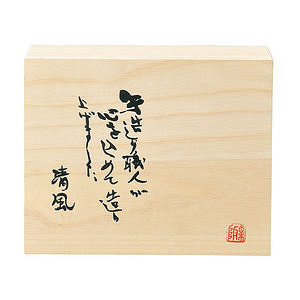 手造り職人が
心を込めて造り
上げました。
清風